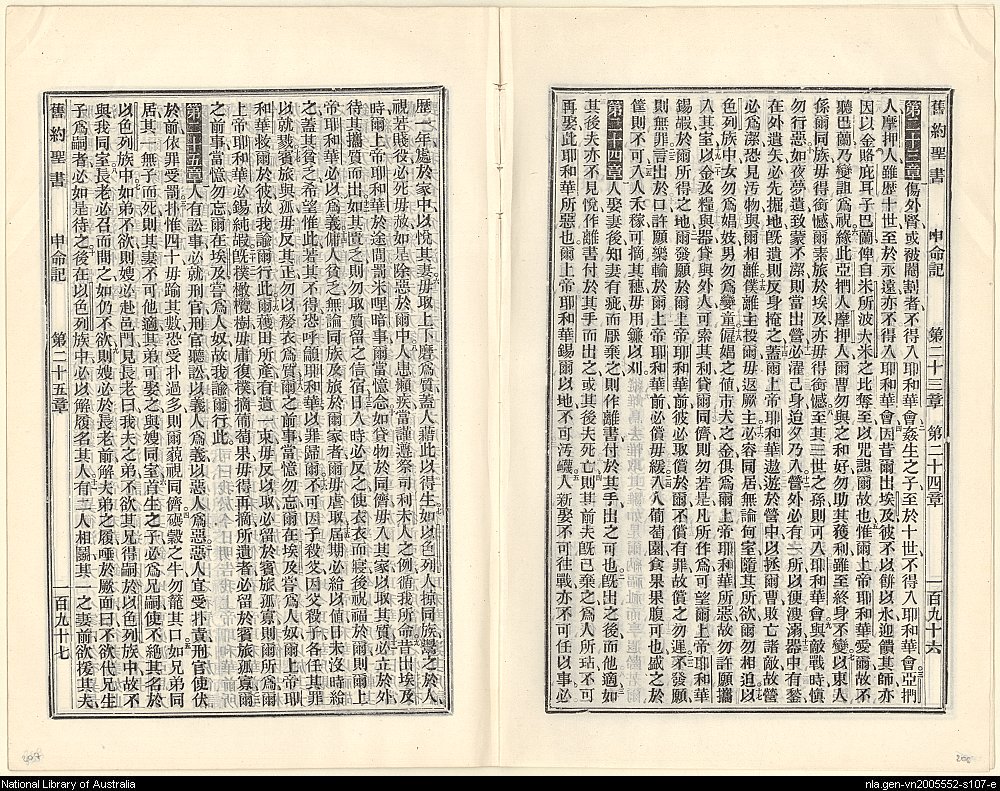 舊約聖書 申命記 第二十三章 第二十四章 一百九十六
第二十三章 傷外腎或被閹割者不得入耶和華會姦生之子至於十世不得入耶和華會亞捫
人摩押人雖歷十世至於永遠亦不得入耶和華會因昔爾出埃及彼不以餅以水迎饋其師亦
因以金賂庇耳子巴蘭俾自米所波大米之比奪至以咒詛爾故也惟爾上帝耶和華愛爾故不
聽巴蘭乃變詛爲祝緣此亞捫人摩押人爾曹勿與之和好勿助其獲利雖至終身不變以東人
係爾同族毋得銜憾爾素旅於埃及亦毋得銜憾至其三世之孫則可入耶和華會與敵戰時愼
勿行惡如夜夢遺致蒙不潔則當出營必濯己身迨夕乃入營外必有一所以便溲溺器中有鍫
在外遺矢必先掘地旣遺則反身掩之蓋爾上帝耶和華遨遊於營中以拯爾曹敗亡諸敵故營
必爲潔恐見汚物與爾相離僕離主投爾毋返厥主必容同居無論何室隨其所欲爾勿相迫以
色列族中女勿爲娼妓男勿爲孌童娼之値市犬之金俱爲爾上帝耶和華所惡故勿許願攜
入其室以金及糧與器貸與外人可索其利貸爾同儕則勿若是凡所作爲可望爾上帝耶和華
錫嘏於爾所得之地爾發願於爾上帝耶和華前彼必取償於爾不償有罪故償之勿遲不發願
則無罪言出於口許願樂輸於爾上帝耶和華前必償毋緩入人葡萄園食果果腹可也盛之於
筐則不可入人禾稼可摘其穗毋用鐮以刈
第二十四章 人娶妻後知妻有疵而厭棄之則作離書付於其手出之可也旣出之後而他適如
其後夫亦不見悅作離書付於其手而出之或其後夫死亡則其前夫旣已棄之爲人所玷不可
再娶此耶和華所惡也爾上帝耶和華錫爾以地不可汚衊人新娶不可往戰亦不可任以事必
歷一年處於家中以悅其妻毋取上下磨爲質蓋人藉此以得生如以色列人掠同族鬻之於人
視若賤役必死毋赦如是除惡於爾中人患癩疾當謹遵祭司利未人之例循我所命昔出埃及
時爾上帝耶和華於途間罰米哩暗事爾當憶念如貸物於同儕毋入其家以取其質必立於外
待其攜質而出如其貧乏則勿取質留之信宿日入時必反之使衣衣而寢後祝福於爾則爾上
帝耶和華必以爲義傭人貧乏無論同族及旅於爾家者爾毋虐取屆期必給以値日未沒時給
之蓋其貧乏希望惟此若其不得恐呼籲耶和華以罪歸爾不可因子殺父因父殺子各任其罪
以就戮賓旅與孤毋反其正勿以嫠衣爲質爾之前事當憶勿忘爾在埃及嘗爲人奴爾上帝耶
和華救爾於彼故我諭爾行此爾穫田所產有遺一束毋反以取必留於賓旅孤寡則爾所爲爾
上帝耶和華必錫純嘏旣樸橄欖樹毋庸復樸摘葡萄果毋得再摘所遺者必留於賓旅孤寡爾
之前事當憶勿忘爾在埃及嘗爲人奴故我諭爾行此
第二十五章 人有訟事必就刑官刑官聽訟以義人爲義以惡人爲惡惡人宜受扑責刑官使伏
於前依罪受罰扑惟四十毋踰其數恐受扑過多則爾藐視同儕碾穀之牛勿籠其口如兄弟同
居其一無子而死則其妻不可他適其弟可娶之與嫂同室首生之子必爲兄嗣使不絕其名於
以色列族中如弟不欲則嫂必赴邑門見長老曰我夫之弟不欲其兄得嗣於以色列族中故不
與我同室長老必召而問之如仍不欲則嫂必於長老前解夫弟之履唾於厥面曰不欲代兄生
子爲嗣者必如是待之後在以色列族中必以解履名其人有二人相鬬其一之妻前欲援其夫
舊約聖書 申命記 第二十五章 一百九十七
207
206
National Library of Australia
nla.gen-vn2005552-s107-e